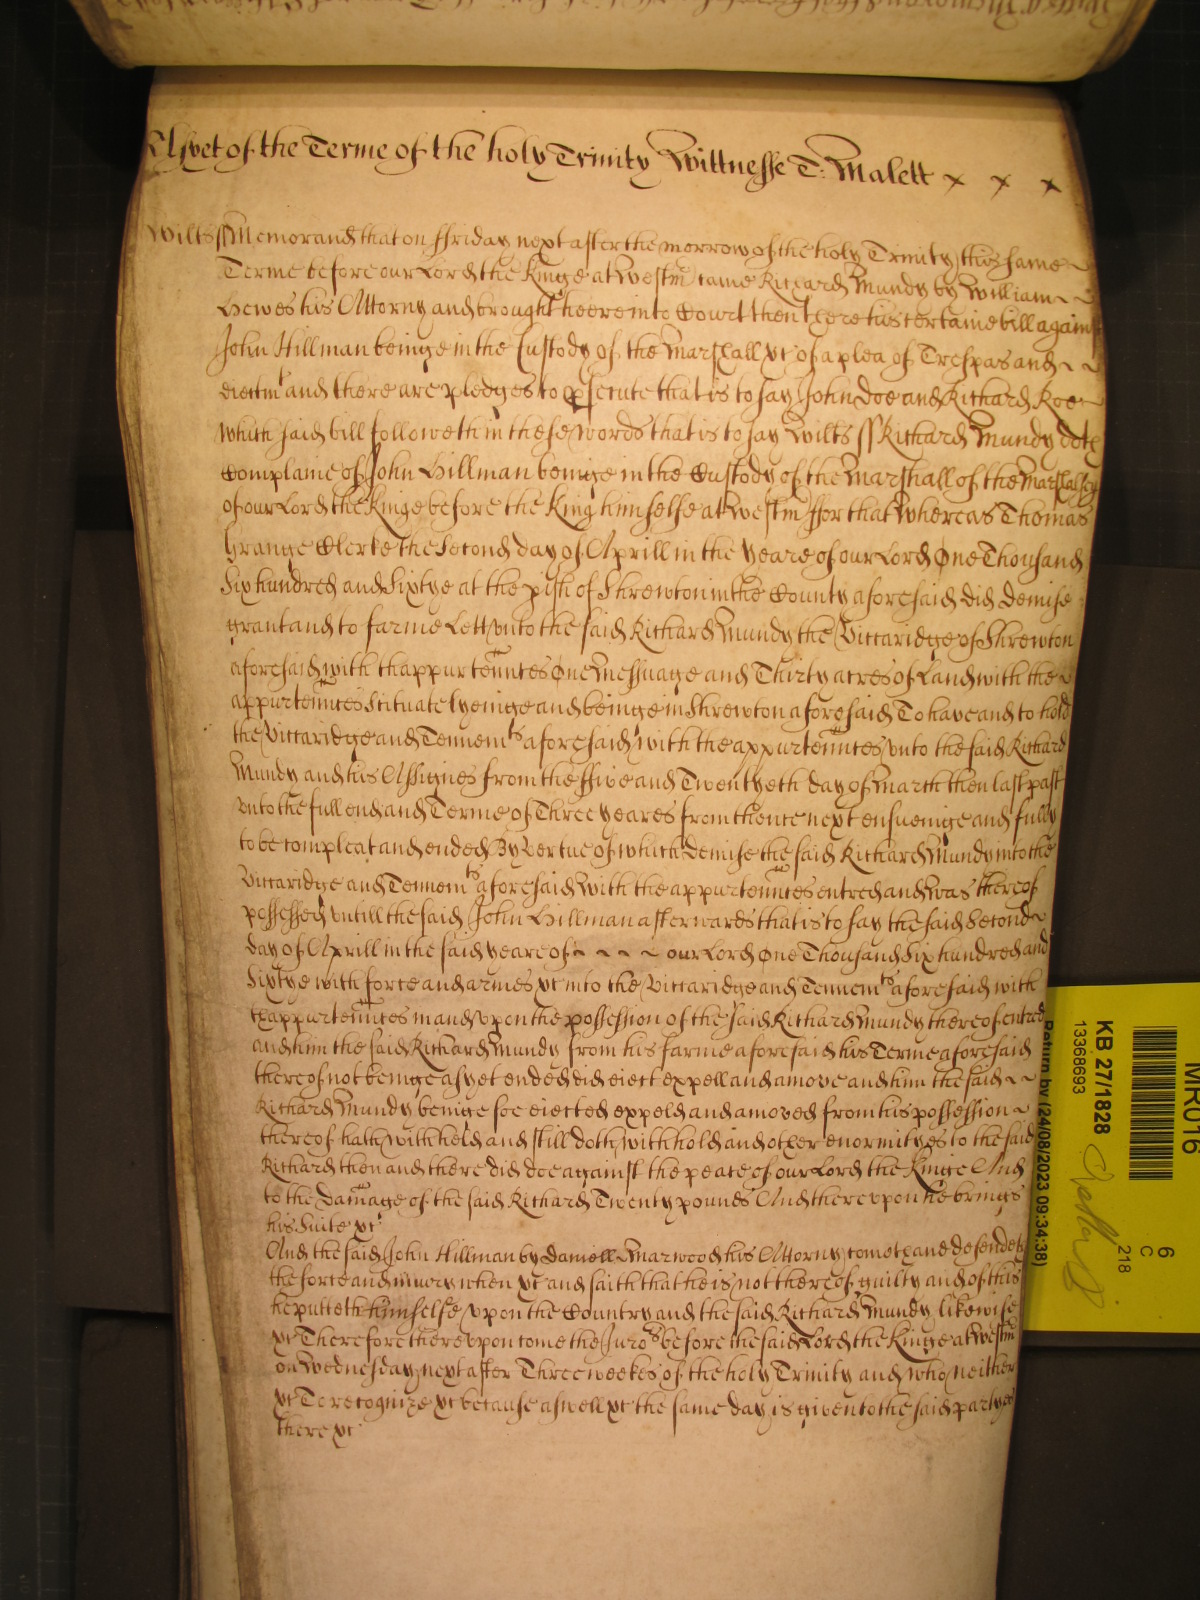 As yet of the Terme of the holy Trinity Wittnesse T: Malett x x x
Wilts ss Memorand that on ffriday next after the morrow of the holy Trinity this same
Terme before our Lord the Kinge at Westm came Richard Mundy by William
Hewes his Attorny and brought heere into Court then there his certaine bill against
John Hillman beinge in the Custody of the Marshall &c of a plea of Trespas and
eiectm^t and there are pledges to psecute that is to say John Doe and Richard Roe
which said bill followeth in these words that is to say Wilts ss Richard Mundy doth
Complaine of John Hillman beinge in the Custody of the Marshall of the Marshalsey
of our Lord the Kinge before the King himselfe at Westm ffor that Whereas Thomas
Grange Clerke the Second day of Aprill in the yeare of our Lord One Thousand
Six hundred and Sixtye at the pish of Shrewton in the County aforesaid did demise
grant and to farme Lett unto the said Richard Mundy the Viccaridge of Shrewton
aforesaid with thappurtennces One Messuage and Thirty acres of Land with the
appurtennces Scituate lyeinge and beinge in Shrewton aforesaid To have and to hold
the Viccaridge and Tennem^ts aforesaid with the appurtennces unto the said Richard
Mundy and his Assignes from the ffive and Twentyeth day of March then last past
unto the full end and Terme of Three yeares from thence next ensueinge and fully
to be compleat and ended By vertue of which demise the said Richard Mundy into the
Viccaridge and Tennem^ts aforesaid with the appurtennces entred and was thereof
possessed untill the said John Hillman afterwards that is to say the said Second
day of Aprill in the said yeare of our Lord One Thousand Six hundred and
Sixtye with force and armes &c into the Viccaridge and Tennem^ts aforesaid with
thappurtennces in and upon the possession of the said Richard Mundy thereof entred
and him the said Richard Mundy from his farme aforesaid his Terme aforesaid
thereof not beinge as yet ended did eiect expell and amove and him the said
Richard Mundy beinge soe eiected expeld and amoved from his possession
thereof hath withheld and still doth withhold and other enormityes to the said
Richard then and there did doe against the peace of our Lord the Kinge And
to the damage of the said Richard Twenty pounds And thereupon he brings
his Suite &c
And the said John Hillman by Daniell Marwood his Attorny cometh and defendeth
the force and iniury when &c and saith that he is not thereof guilty and of this
he putteth himselfe upon the Country and the said Richard Mundy likewise
&c Therefore thereupon come the Juro^rs before the said Lord the Kinge at Westm
on Wednesday next after Three weekes of the holy Trinity and who neither
&c To recognize &c because aswell &c the same day is given to the said partyes
there &c
MR016
6
C
218
KB 27/1828
13368693
Return by (24/08/2023 09:34:38)